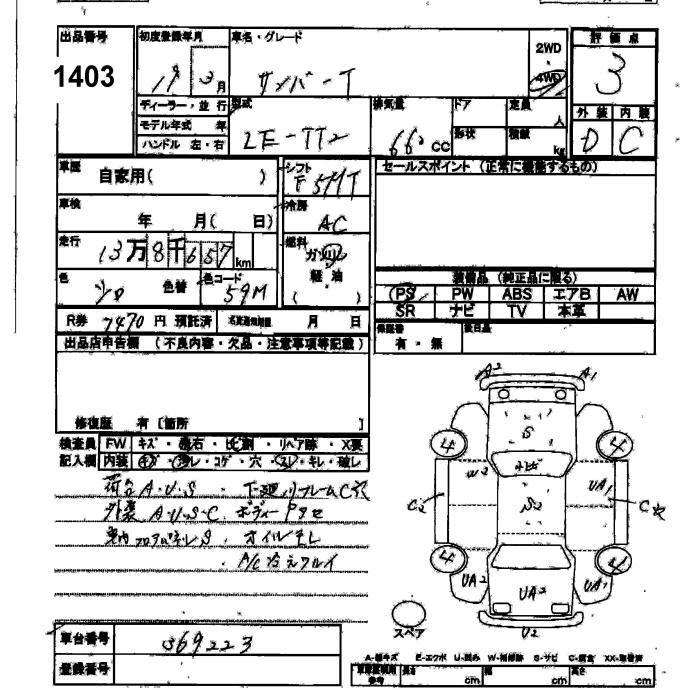 出品番号 初度登録年月 車名・グレード 評価点
1403 19 年 3 月 サンバーT 2WD ・ 4WD 3
ディーラー・並行 型式 排気量 ドア 定員 人 外装 内装
モデル年式 年 LE-TT2 660 CC 形状 積載 kg D C
ハンドル 左・右
車歴 自家用( ) シフト F5MT セールスポイント (正常に機能するもの)
車検 年 月( 日) 冷房 AC
走行 13万8千657km 燃料 ガソリン 軽油 ( )
色 シロ 色替 色コード 59M 装備品 (純正品に限る)
PS PW ABS エアB AW
SR ナビ TV 本革
R券 7470 円 預託済 月 日 保証書 有・無 後日品
出品店申告欄 (不良内容・欠品・注意事項等記載)
修復歴 有 [箇所 ]
検査員 FW キズ・飛石・ヒビ割・リペア跡・X要
記入欄 内装 キズ・汚レ・コゲ・穴・スレ・キレ・破レ
荷台A・U・S・下廻リフレームC穴
外装A・U・S・C ボディーPタセ
車内フロアパネルS オイルモレ
・A/C冷えワルイ
A2 A1
4 S 4
U2 ヒビ UA1
C2 S2 C穴
4 4
UA2 UA2 UA1
U2
スペア
車台番号 369223
登録番号
A-線キズ E-エクボ U-凹み W-補修跡 S-サビ C-腐食 XX-取替済
長さ cm 幅 cm 高さ cm